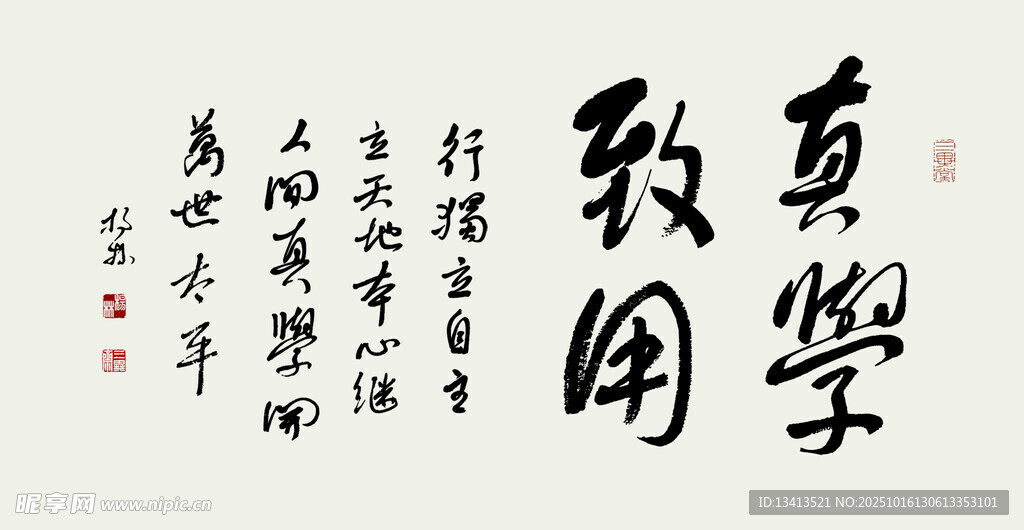 真學
致用
行獨立自主
立天地本心继
人间真學開
萬世太平
昵享网 www.nipic.cn
ID:13413521 NO:20251016130613353101